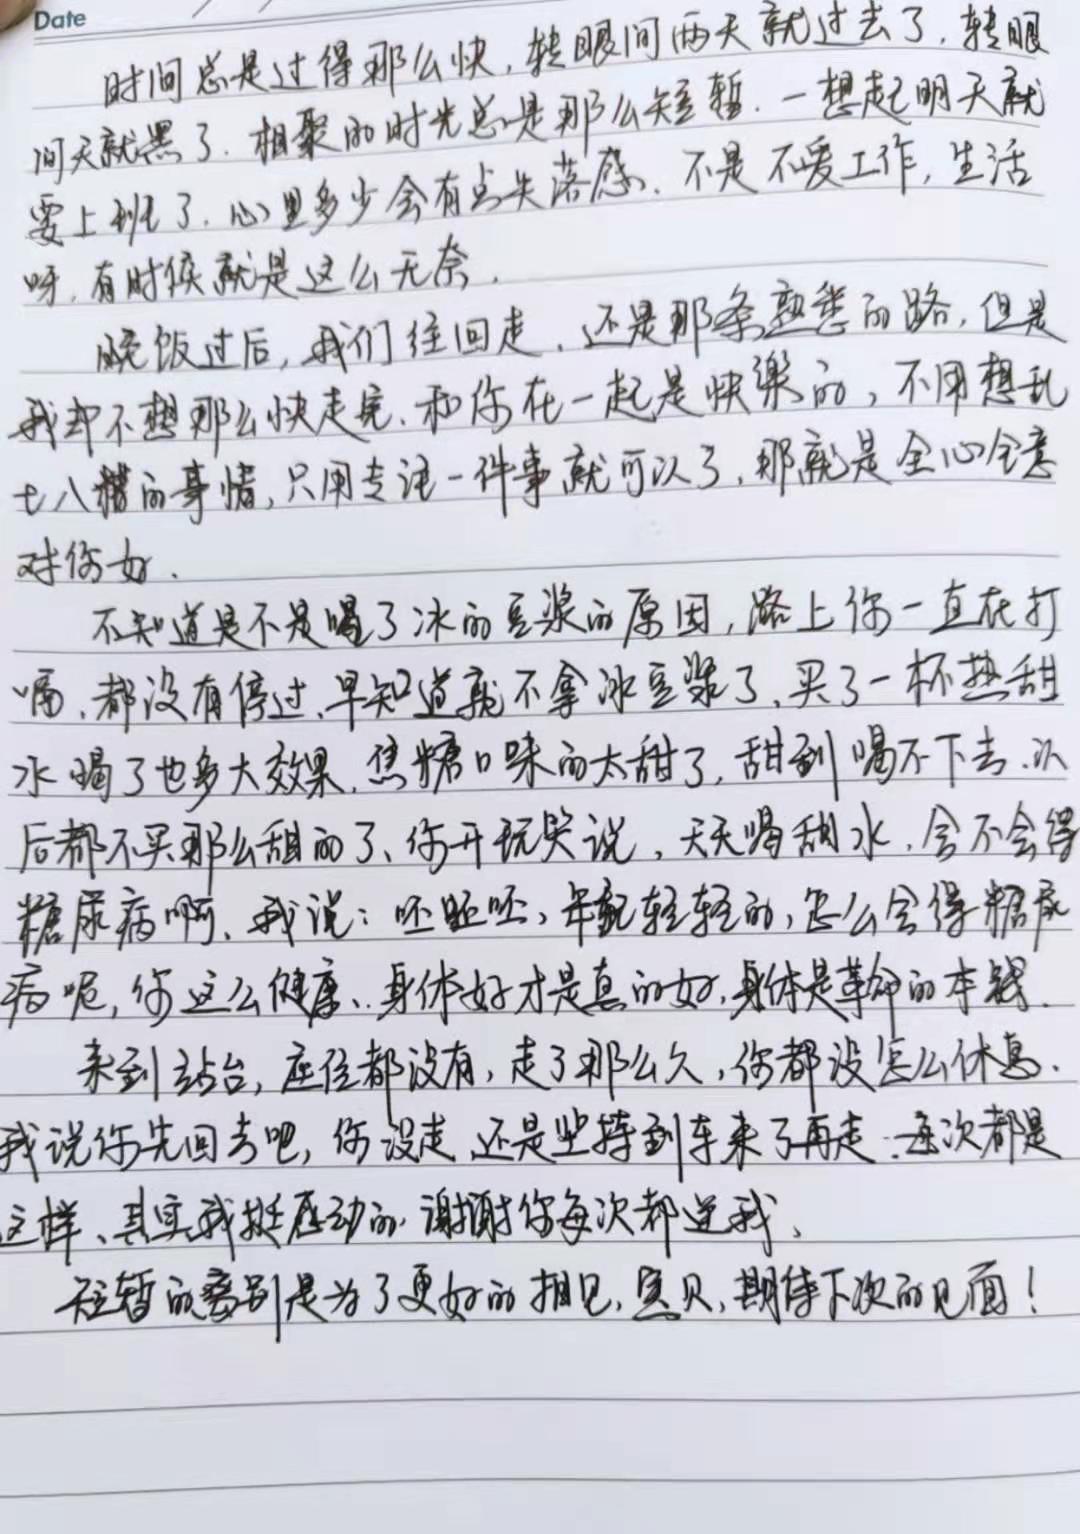 Date
时间总是过得那么快,转眼间两天就过去了.转眼
间天就黑了.相聚的时光总是那么短暂.一想起明天就
要上班了.心里多少会有点失落感、不是不爱工作,生活
呀,有时候就是这么无奈.
晚饭过后,我们往回走.还是那条熟悉的路,但是
我却不想那么快走完.和你在一起是快樂的,不用想乱
七八糟的事情,只用专注一件事就可以了,那就是全心全意
对你好.
不知道是不是喝了冰的豆浆的原因,路上你一直在打
嗝、都没有停过、早知道就不拿冰豆浆了、买了一杯热甜
水喝了也多大效果,焦糖口味的太甜了,甜到喝不下去.以
后都不买那么甜的了、你开玩笑说,天天喝甜水.会不会得
糖尿病啊、我说:呸呸呸,年纪轻轻的,怎么会得糖尿
病呢,你这么健康、身体好才是真的好,身体是革命的本钱.
来到站台,座位都没有,走了那么久,你都没怎么休息.
我说你先回去吧,你没走,还是坚持到车来了再走.每次都是
这样、其实我挺感动的,谢谢你每次都送我、
短暂的离别是为了更好的相见,宝贝,期待下次的见面!